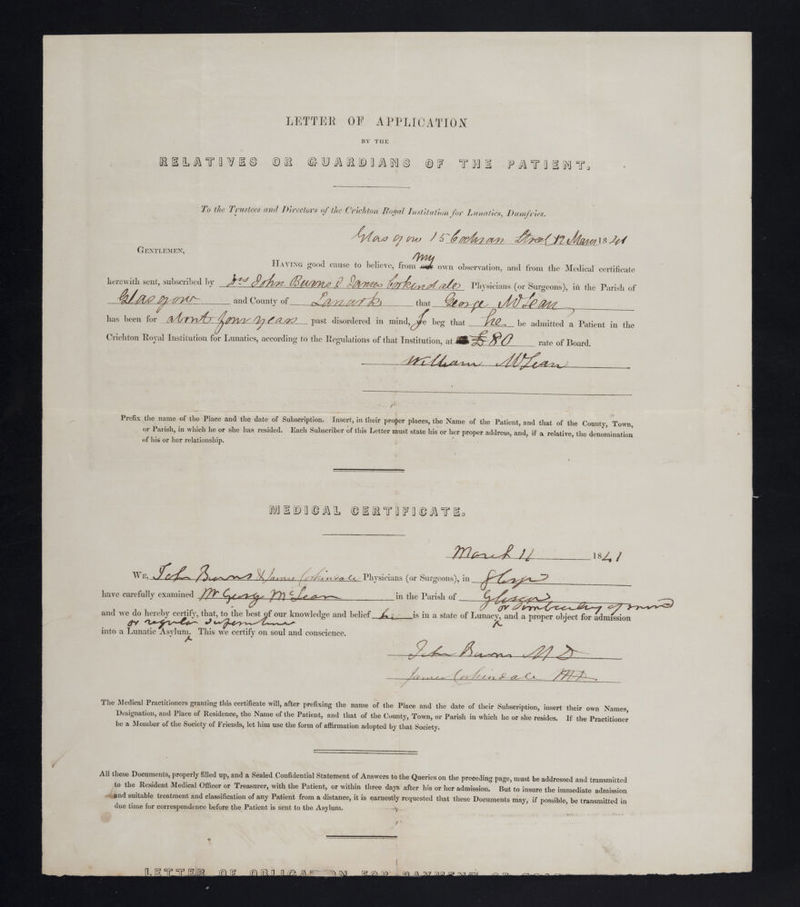 LETTER OF APPLICATION
BY THE
RELATIVES OR GUARDIANS OF THE PATIENT.
To the Trustees and Directors of the Crichton Royal Institution for Lunatics, Dumfries.
Glasgow 15 Cochran Street 12 March 1841
GENTLEMEN,
my
HAVING good cause to believe, from own observation, and from the Medical certificate
herewith sent, subscribed by Drs John Burns & James Corkindale Physicians (or Surgeons), in the Parish of
Glasgow and County of Lanark that George McLean
has been for about four years past disordered in mind, I beg that he be admitted a Patient in the
Crichton Royal Institution for Lunatics, according to the Regulations of that Institution, at £80 rate of Board.
William McLean
Prefix the name of the Place and the date of Subscription. Insert, in their proper places, the Name of the Patient, and that of the County, Town,
or Parish, in which he or she has resided. Each Subscriber of this Letter must state his or her proper address, and, if a relative, the denomination
of his or her relationship.
MEDICAL CERTIFICATE.
March 11 1841
WE, John Burns & James Corkindale Physicians (or Surgeons), in Glasgow
have carefully examined Mr George McLean in the Parish of Glasgow
or imbecility of mind
and we do hereby certify, that, to the best of our knowledge and belief he is in a state of Lunacy, and a proper object for admission
or regular
into a Lunatic Asylum. This we certify on soul and conscience.
John Burns MD
James Corkindale MD.
The Medical Practitioners granting this certificate will, after prefixing the name of the Place and the date of their Subscription, insert their own Names,
Designation, and Place of Residence, the Name of the Patient, and that of the County, Town, or Parish in which he or she resides. If the Practitioner
be a Member of the Society of Friends, let him use the form of affirmation adopted by that Society.
All these Documents, properly filled up, and a Sealed Confidential Statement of Answers to the Queries on the preceding page, must be addressed and transmitted
to the Resident Medical Officer or Treasurer, with the Patient, or within three days after his or her admission. But to insure the immediate admission
and suitable treatment and classification of any Patient from a distance, it is earnestly requested that these Documents may, if possible, be transmitted in
due time for correspondence before the Patient is sent to the Asylum.
LETTER OF OBLIGATION FOR